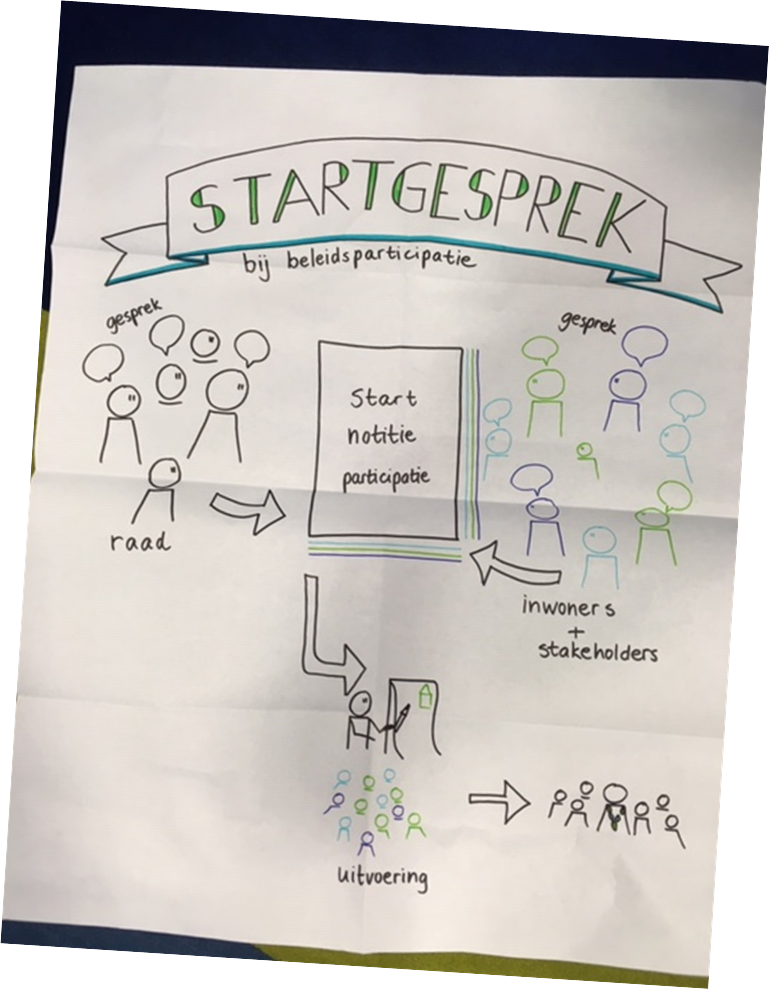 STARTGESPREK
bij beleidsparticipatie
gesprek
raad
Start
notitie
participatie
gesprek
inwoners
+
stakeholders
uitvoering